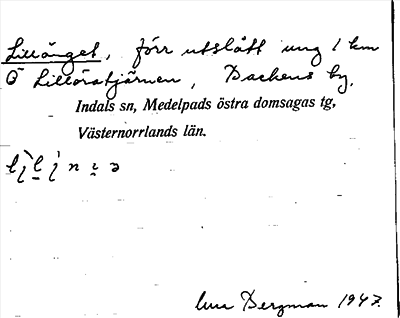 Lillänget, förr utslått ung 1 km
Ö Lillöratjärnen, Backens by,
Indals sn, Medelpads östra domsagas tg,
Västernorrlands län.
Bergman 1947.